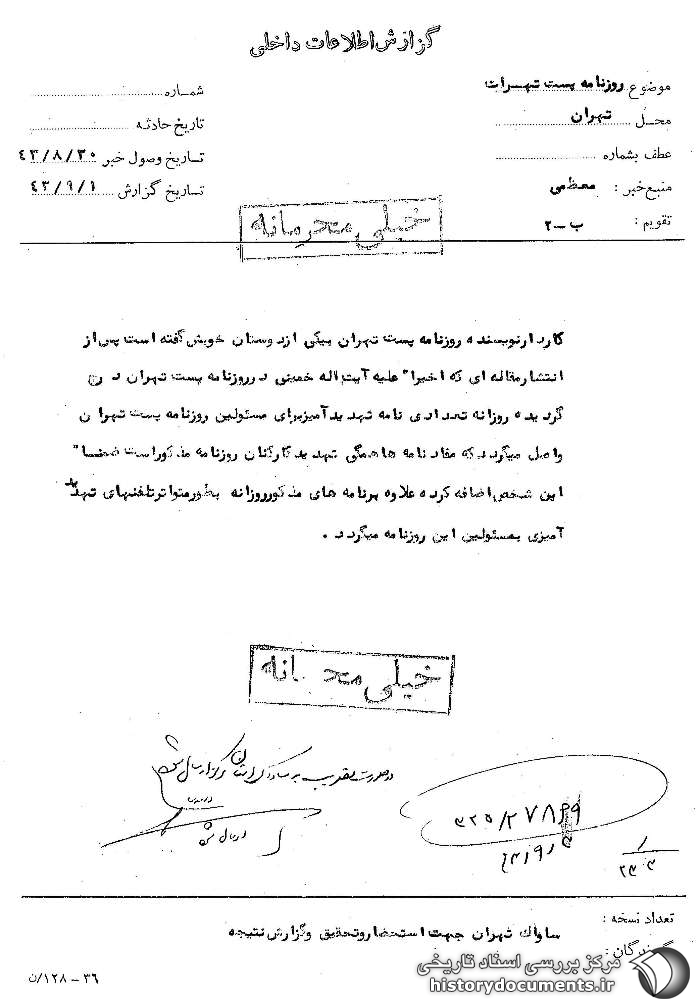 گزارش اطلاعات داخلی
موضوع روزنامه پست تهران
محل تهران
عطف بشماره
منبع خبر : معظمی
تقویم : ب – ۲
شماره
تاریخ حادثه
تاریخ وصول خبر ۴۳/۸/۳۰
تاریخ گزارش ۴۳/۹/۱
خیلی محرمانه
کاردار نویسنده روزنامه پست تهران بیکی از دوستان خویش گفته است پس از
انتشار مقاله ای که اخیرا" علیه آیت اله خمینی در روزنامه پست تهران درج
گردیده روزانه تعدادی نامه تهدید آمیز برای مسئولین روزنامه پست تهران
واصل میگردد که مفاد نامه ها همگی تهدید کارکنان روزنامه مذکور است ضمنا"
این شخص اضافه کرده علاوه برنامه های مذکور روزانه بطور متواتر تلفنهای تهدید
آمیزی بمسئولین این روزنامه میگردد .
خیلی مح انه
در صورت تصویب به ساواک ارسال
ارسال شد
۳۲۵/۲۷۸
تعداد نسخه :
گیرندگان :
ساواک تهران جهت استحضار و تحقیق و گزارش نتیجه
۳۶ – ۱۲۸/ن
مرکز بررسی اسناد تاریخی
historydocuments.ir